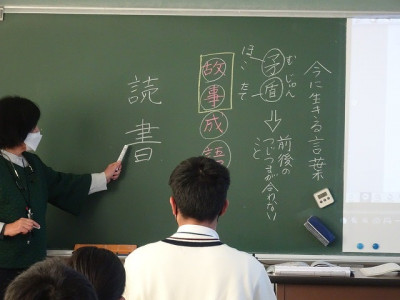 今に生きる言葉
むじゅん
矛盾
ほこ
たて
⇩
前後の
つじつまが合わない
こと
故事成語
読書